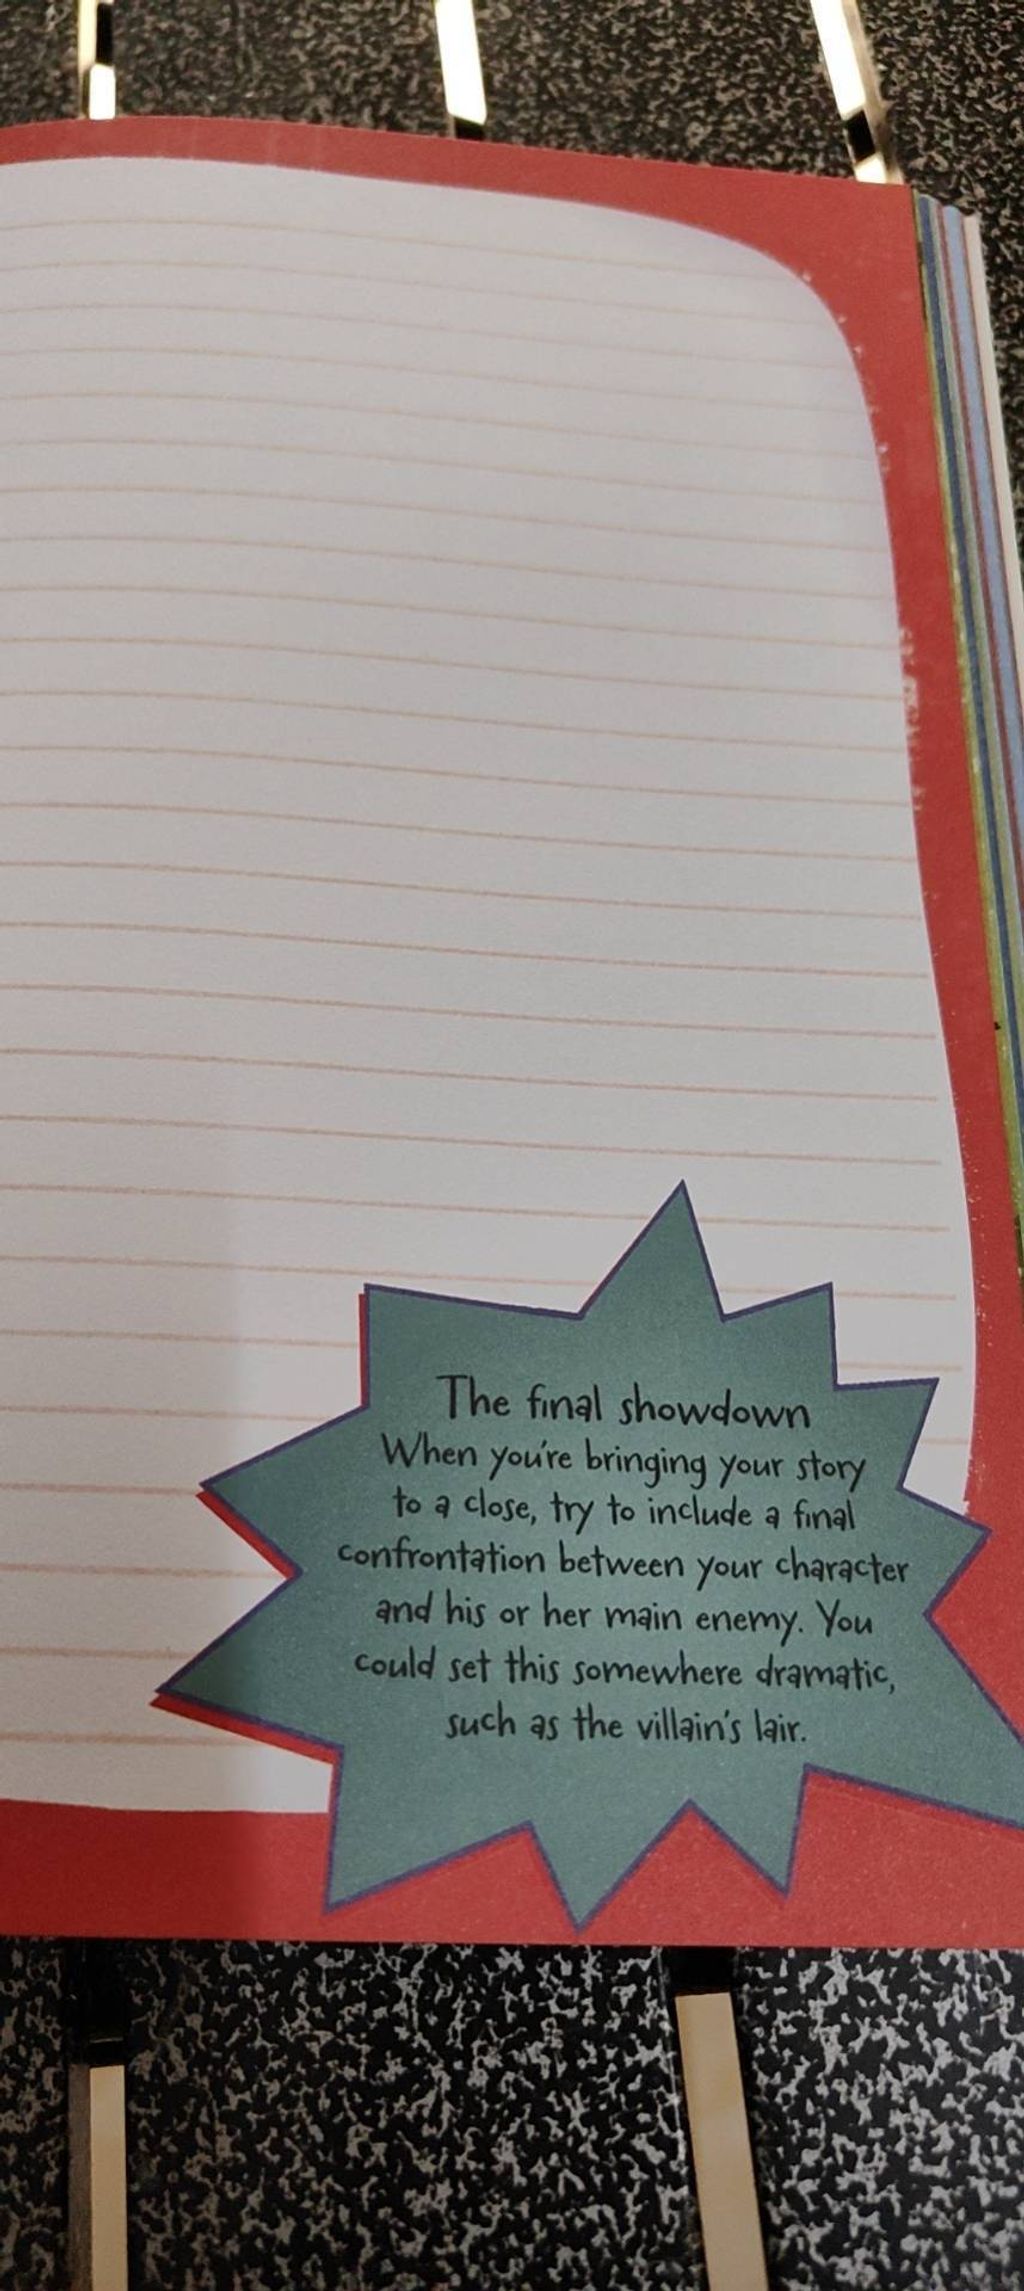 The final showdown
When you're bringing your story
to a close, try to include a final
confrontation between your character
and his or her main enemy. You
could set this somewhere dramatic,
such as the villain's lair.